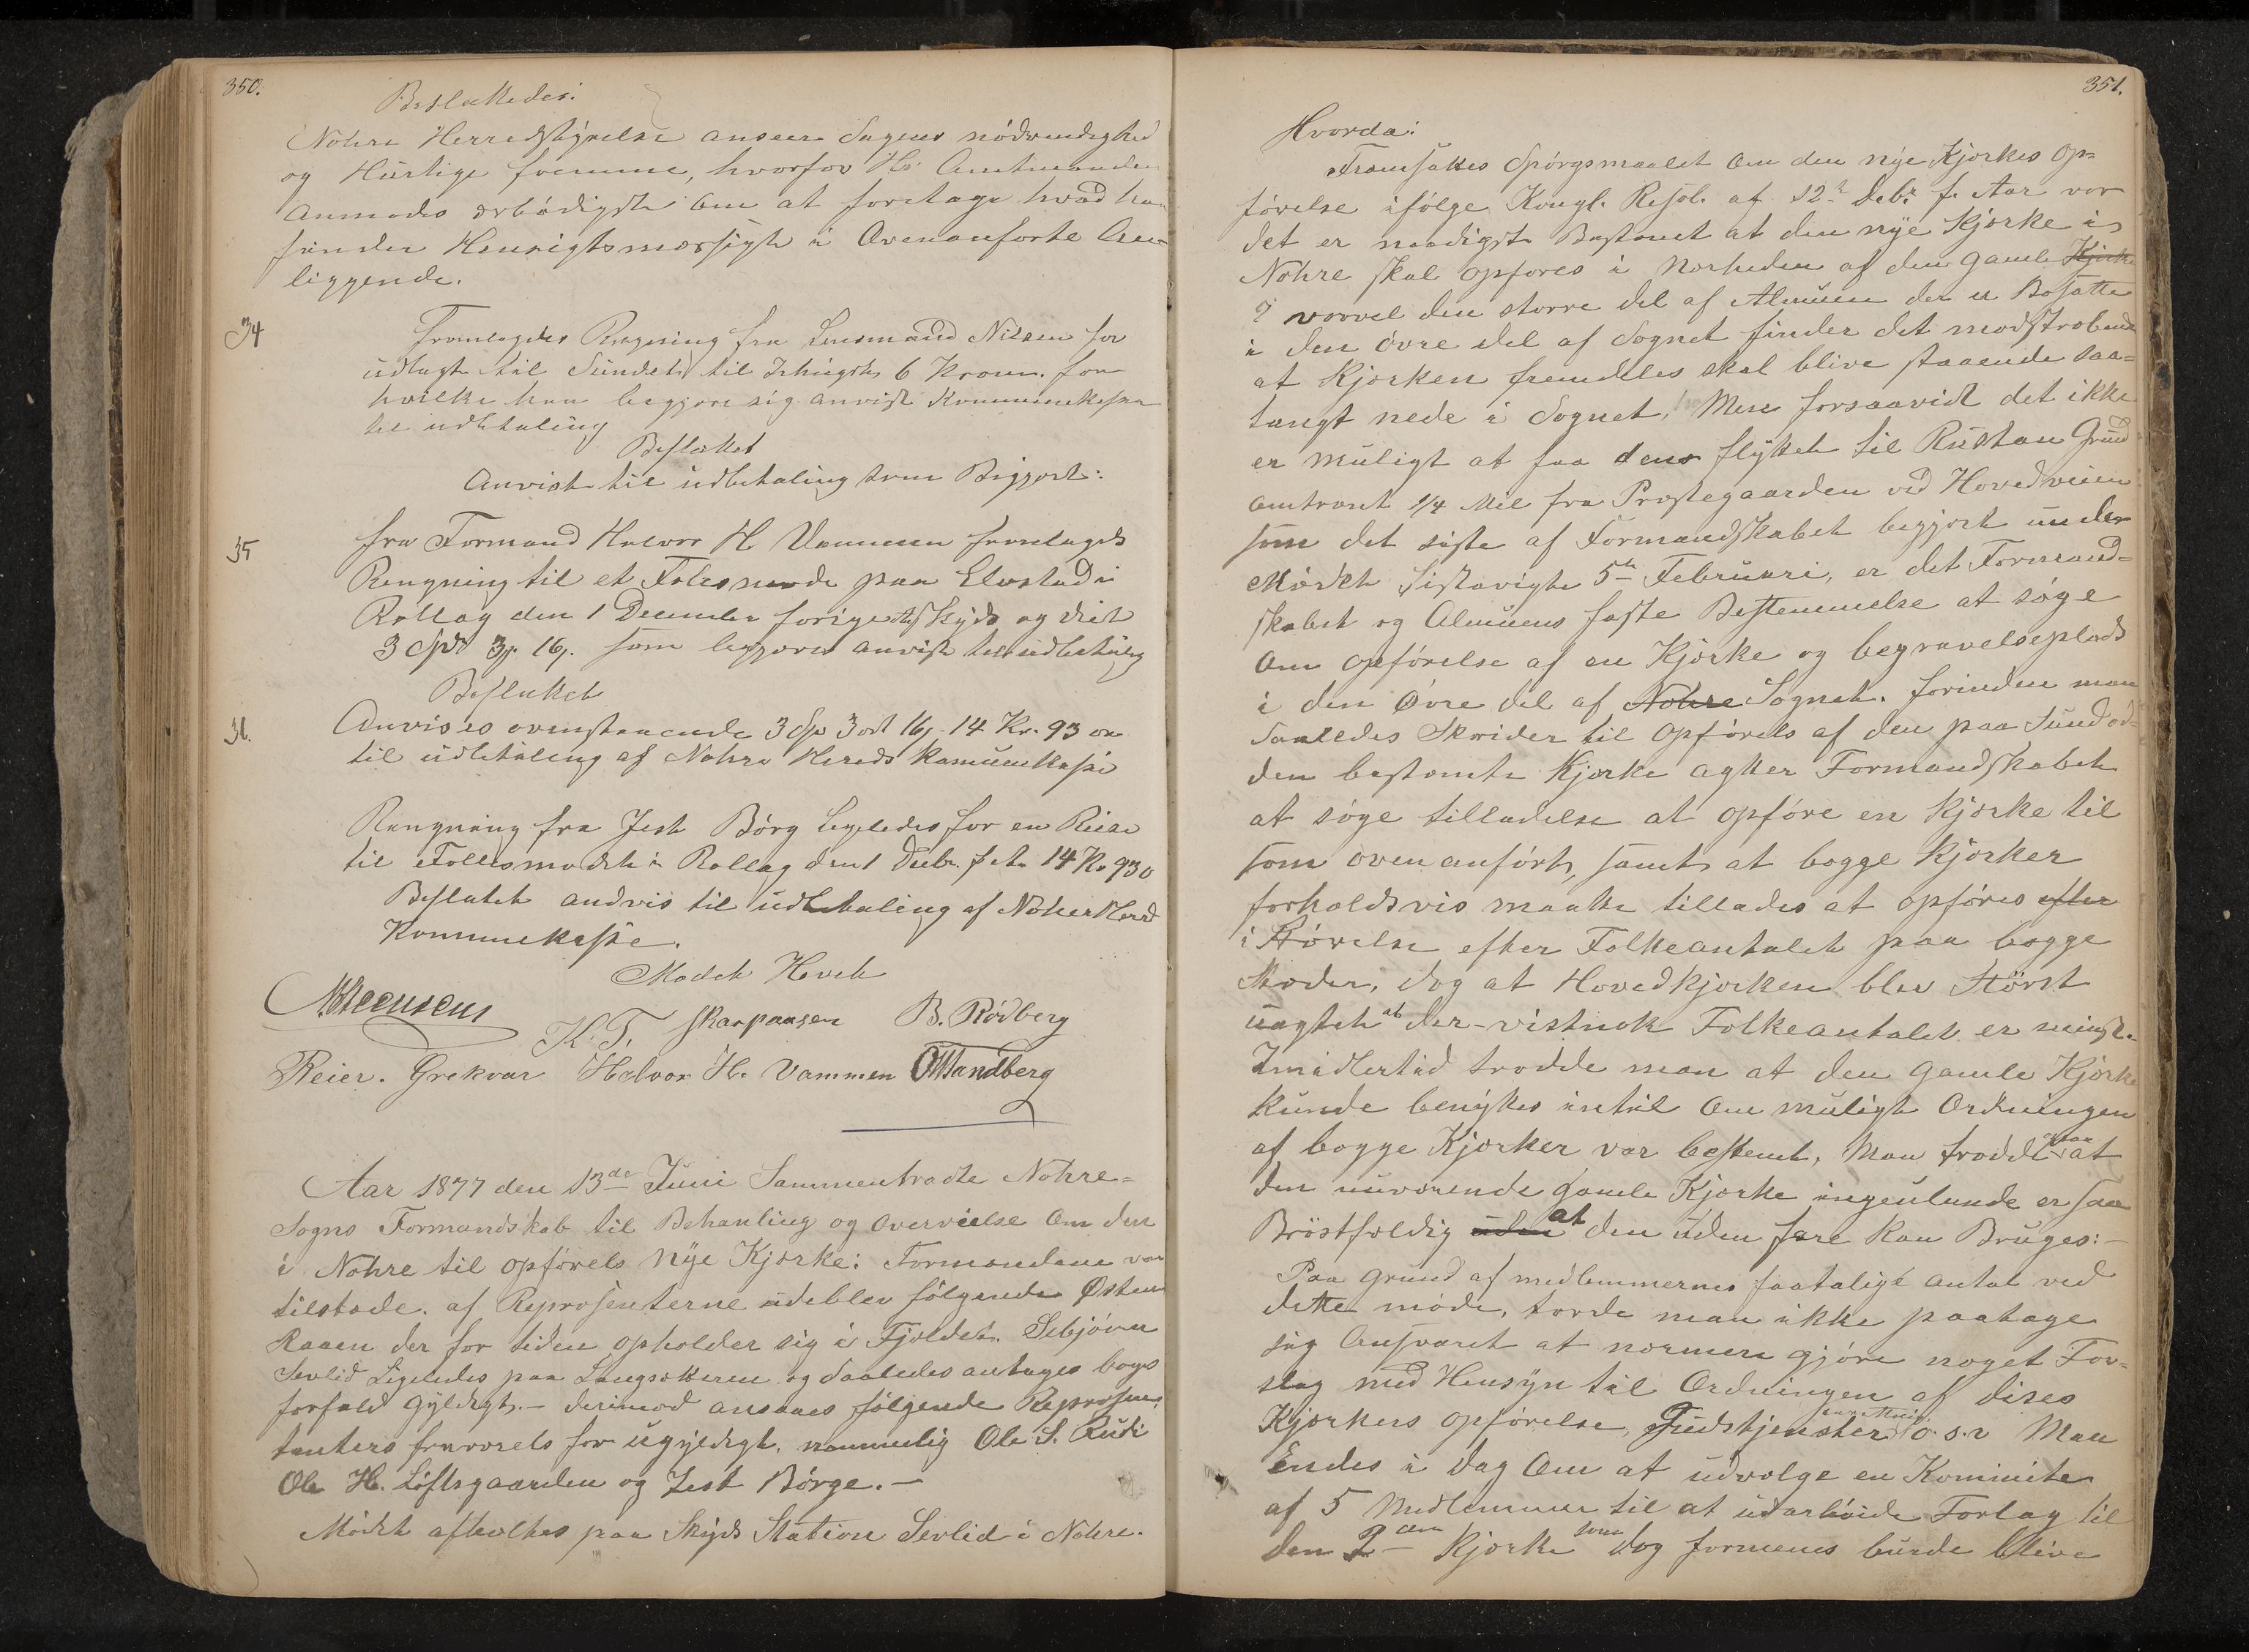 350.
Besluttedes:
Nohre Herredstyrelse anseer Sagens nödvendighed
og Hurtige fremme, hvorfor Hr Amtmanden
anmodes ærbödigst om at foretage hvad han
finder Hensigtsmæssigt i Ovenanførte An-
liggende.
34
Fremlagdes Regning fra Lensmand Nilsen for
udlagt til Sundets til 6 Kroner. for
hvilke han begjære sig anvist Kommunekassen
til udbetaling
Besluttet
Anvist til udbetaling som Begjært:
35
fra Formand Halvor H Vammen fremlagdes
Rengning til et Felesmøde paa Elvestad i
Rollag den 1 December forige Skyds og diet
3 Spd 3 16 s. som begjæres anvist til udbetaling
Besluttet
36.
Anvises ovenstaaende 3 Spd 3 ort 16 s. 14 Kr. 93 øre
til udbetaling af Nohre Hereds Komunekasse
Rengning fra Jest Börg ligeledes for en Reise
til Fellesmødet i Rollag den 1 Decbr. f. A. 14 Kr 93 ö
Besluttet andvis til udbetaling af Nohre Herred
Kommunekasse.
Mødet Hævet
K. T. Skarpaasen B. Rödberg
Reier. Grekvar Halvor H. Vammen O Sandberg
Aar 1877 den 13de Juni Sammentraadte Nohre-
Sogns Formandskab til Behanling og overveielse om den
i Nohre til opførels nye Kjørke: Formandene var
tilstæde. af Repræsenterne udeblev følgende Østen
Raaen der for tiden opholder sig i Fjeldet. Sebjörn
Sevlid Ligeledes paa Langsætteren og Saaledes antages begges
forfald gyldigt. – derimod ansaaes følgende Repræsen-
tanters fraværels for ugyldigt. nemmelig Ole S. Rudi
Ole H. Löftsgaarden og Jest Börge. –
Mödet afholtes paa Skyds Station Sevlid i Nohre.
351.
Hvorda:
Fremsattes Spörgsmaalet om den nye Kjørkes Op-
förelse ifølge Kongl. Resol. af 12te Debr. f. Aar var
det er naadigst Bestemt at den nye Kjørke i
Nohre skal opføres i Nærheden af den gamle Kjørke
i den övre del af Sognet finder det modstræbende
at Kjørken fremdeles skal blive staaende saa-
langt nede i Sognet, Men forsaavidt det ikke
er muligt at faa dens flyttet til Rustan Grund
omtrent 1/4 Mil fra Præstegaarden ved Hovedveien
som det siste af Formandskabet begjært under
Mödet Sistavigte 5te Februari, er det Formand-
skabet og Almuens faste Bestemmelse at söge
om opförelse af en Kjørke og begravelseplads
i den Øvre del af Nohre Sognet. forinden man
Saaledes Skrider til opförels af den paa Sund od-
den bestemte Kjørke agter Formandskabet
at söge tilladelse at opføre en Kjørke til
som ovenanført, samt at begge Kjørker
forholdsvis maatte tillades at opføres efter
i Störelse efter Folkeantalet paa begge
Stæder, dog at Hovedkjørken blev störst
uagtet at der vistnok Folkeantalet er mindst.
Imidlertid trodde man at den gamle Kjørke
kunde benyttes indtil om muligt Ordningen
af begge Kjørker var bestemt, Man trodde at
den nuværende gamle Kjørke ingenlunde er saa
Bröstfeldig uden at den uden fare kan Bruges: –
Paa Grund af medlemmernes faatalige antal ved
dette möde, torde man ikke paatage
sig Ansvaret at nærmere gjöre noget For-
slag med Hensyn til Ordningen af dises
Kjørkers opførelse, Gudstjenster o.s.v Man
Endes i Dag om at udvælge en Kominite
af 5 Medlemmer til at udarbeide Forlag til
den 2den Kjørke som dog formenes burde blive